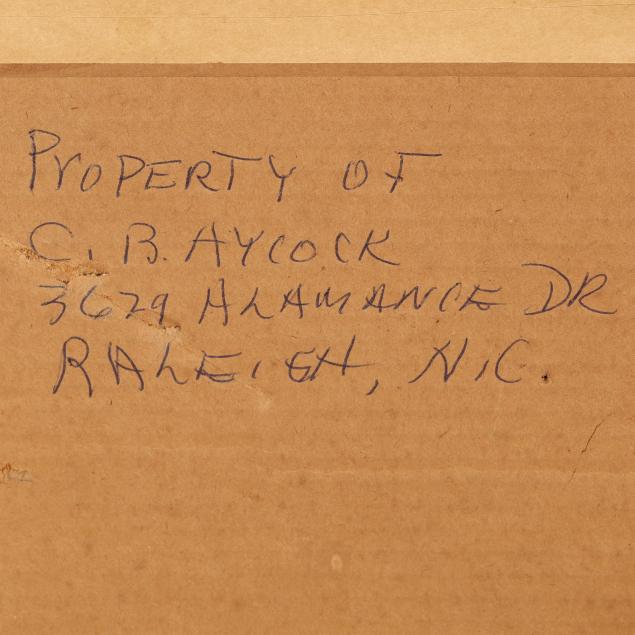 PROPERTY OF
C. B. AYCOCK
3629 ALAMANCE DR
RALEIGH, N.C.